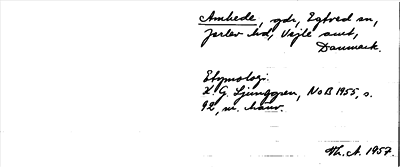 Amhede, gdr, Egtved sn,
Jerlev hd, Vejle amt,
Danmark.
Etymologi:
K. G. Ljunggren, NoB 1955, s.
92, m. hänv.
Th. A. 1957.